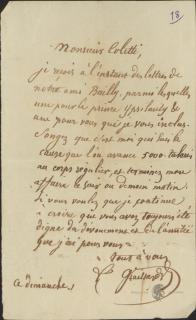 18
Monsieur Coletti,
je reçois à l'instant des lettres de
notre ami Bailly, parmi lesquelles
une pour le prince Ypsilanty &
une pour vous que je vous inclus.
Songez que c'est moi qui suis la
cause que l'on avance 5000 talaris
au corps régulier, et terminez mon
affaire ce soir ou demain matin.
Si vous voulez que je continue
à croire que vous avez toujours été
digne du dévouement et de l'amitié
que j'ai pour vous.
Tout à vous
ce dimanche